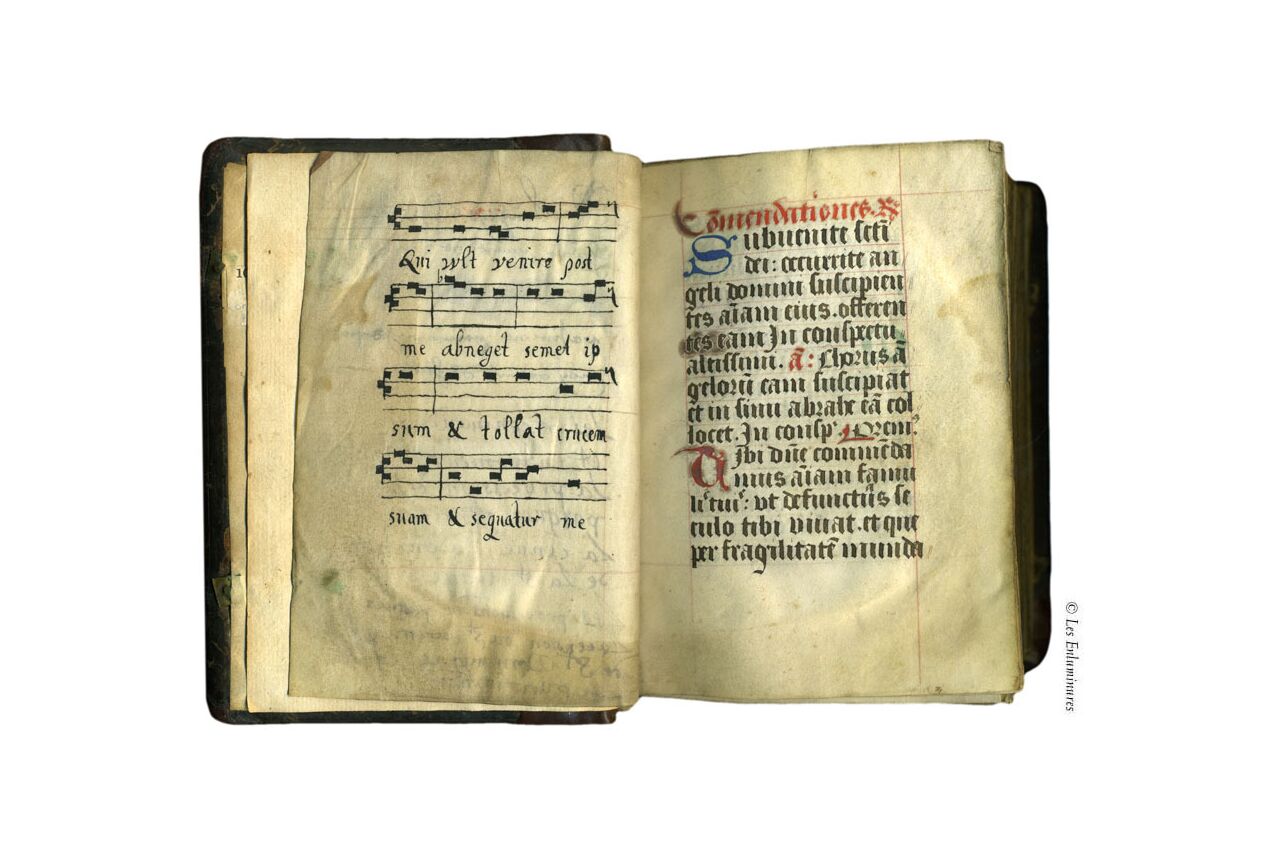 Qui vult venire post
me abneget semet ip
sum & tollat crucem
suam & sequatur me
Cōmendationes. ℟
Subuenite scti
dei: occurrite an
geli domini suscipien
tes aīam eius. offeren
tes eam In conspectu
altissimi. ā: Chorus ā
gelorū eam suscipiat
et in sinu abrahe eā col
locet. In consp
Tibi dn̄e commēda
mus aīam famu
li tui: vt defunctus se
culo tibi viuat. et que
per fragilitatē munda
© Les Enluminures